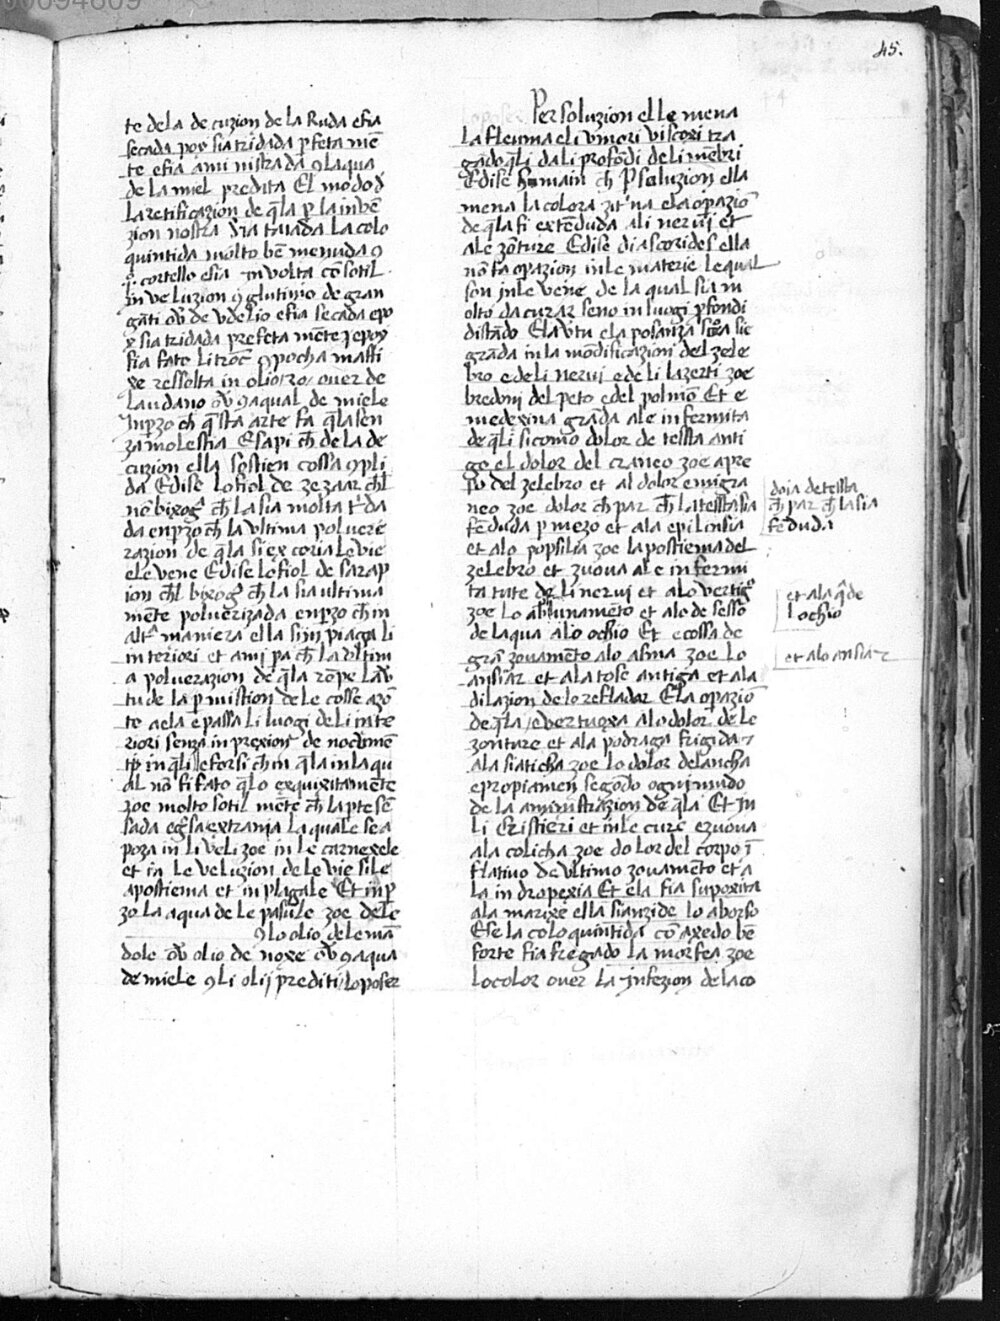 45.
te dela de cuzion de la Ruda e fia
secada poy sia tridada p̄feta mē
te e fia ami nistrada 9 laqua
de la miel predita El modo đ
la retificazion de q̄la p̄ la inuē
zion nostra Sia taiada La colo
quintida molto bē menuda 9
cortello e sia inuolta cō sotil
in ueluzion 9 glutinio de gran
gāti ov̄ de vdelio e fia secada e po
y sia tridada prefeta mēte e poy
sia fate li troc̄ 9 pocha massi
xe ressolta in olio ro/ ouer de
Laudano ov̄ 9 aqual de miele
inp̄zo ch̄ q̄sta arte fa q̄la sen
za molestia E sapi ch̄ de la de
cuzion ella sostien cossa 9pli
da E dise lo fiol de zezaar ch̄l
nō bixoḡ ch̄ la sia molta t'da
da enp̄zo ch̄ la vltima poluere
razion de q̄la si excoria le vie
e le vene E dise lo fiol de sarap
ion ch̄l bixoḡ ch̄ la sia ultima
mēte poluerizada enp̄zo ch̄ in
alt^a maniera ella si inpiaga li
interiori et ami pa ch̄ la vltim
a poluerazion de q̄la rōpe la v̄
tu de la p̄mistion de le cosse azō
te a ela e passa li luogi de li inte
riori senza inprexion de nocumē
to in q̄li e forsi ch̄ in q̄la in la qu
al nō fi fato q̄lo exquixitamēte
zoe molto sotil mēte ch̄ la p̄te sē
sada eg̃sa extrania la quale se a
poza in li veli zoe in le carnexele
et in le veluzion de le vie si le
apostiema et inpiagale Et inp̄
zo la aqua de le passule zoe de le
9 lo olio de le mā
dole ov̄ olio de noxe ov̄ 9 aqua
de miele 9 li olij prediti / lo poser
Per soluzion elle mena
La fleuma e li vmori viscoxi tra
gādo q̄li da li profōdi de li mēbri
E dise humain ch̄ P soluzion ella
mena la colora zit'na e la opaziō
de q̄la fi extēduda a li neruij et
a le zōture E dise diascorides ella
nō fa opazion in le materie le qual
son in le vene de la qual sia m
olto da curar seno in luogi p̄fondi
distādo E la v̄tu e la posanza soa sie
grāda in la mōdificazion del zele
bro e de li neruij e de li lazerti zoe
bredoni del peto e del polmō Et e
medexina grāda a le infermita
de q̄li sicomo dolor de testa anti
ge el dolor del craneo zoe apre
so del zelebro et al dolor emigra
neo zoe dolor ch̄ par ch̄ la testa sia
fēduda p mezo et a la epilensia
et a lo popsilia zoe la postiema del
zelebro et zuoua a le infermi
ta tute de li neruij et a lo vertig̃
zoe lo abunamēto et a lo desesso
de laqua a lo ochio Et e cossa de
grā zouamēto a lo asma zoe lo
ansiar et a la tose antiga et a la
dilazion de lo refladar E la opaziō
de q̄la e vertuoxa a lo dolor de le
zonture et a la podraga frigida 7
a la siaticha zoe lo dolor de lancha
e propiamen segōdo ogni mudo
de la aministrazion de q̄la Et in
li Cristieri et in le cure e zuoua
a la colicha zoe dolor del corpo ī
flatiuo de vltimo zouamēto et a
la indropexia Et ela fia supoxita
a la marixe ella sianzide lo aborso
E se la coloquintida cō axedo bē
forte fia fregado la morfea zoe
lo color ouer la infezion de la co
doia de testa
ch̄ par ch̄ la sia
fēduda
et a la q̄ de
l ochio
et a lo ansiar